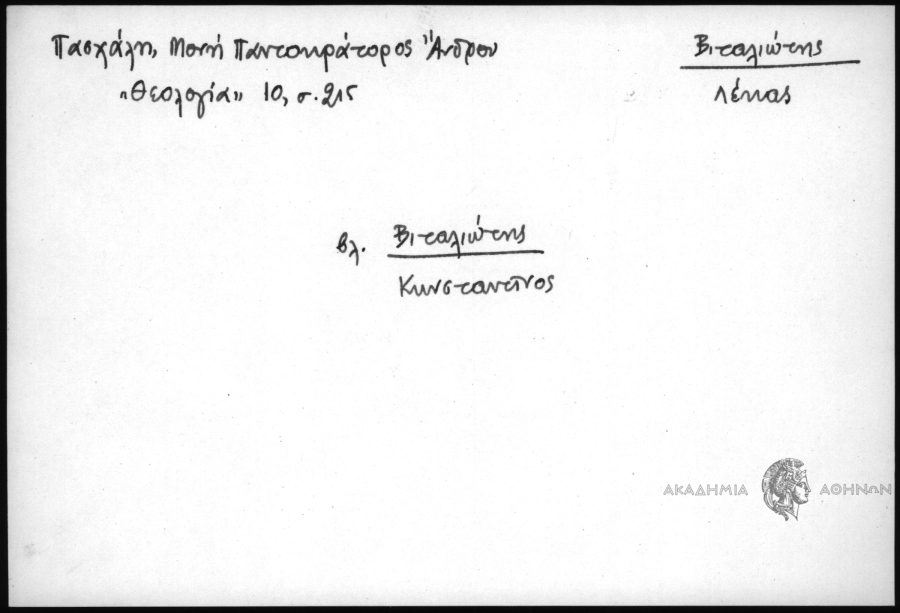 Πασχάλη, Μονή Παντοκράτορος Ἄνδρου
"Θεολογία" 10, σ. 215
Βιταλιώτης
Λέκκας
βλ. Βιταλιώτης
Κωνσταντῖνος
ΑΚΑΔΗΜΙΑ ΑΘΗΝΩΝ